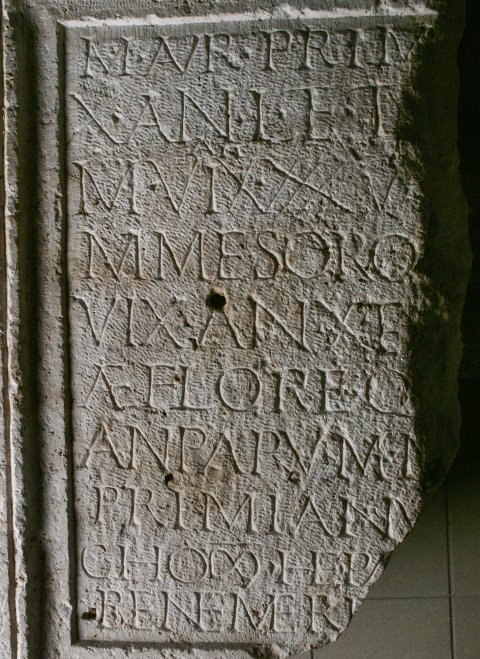 M·AVR·PRIM
X·ANI·ET
MVIXXV
MMESORO
VIX·ANXT
Æ·FLORE·Q
ANPARVM·
PRIMIANV
CHO
BENEMERI